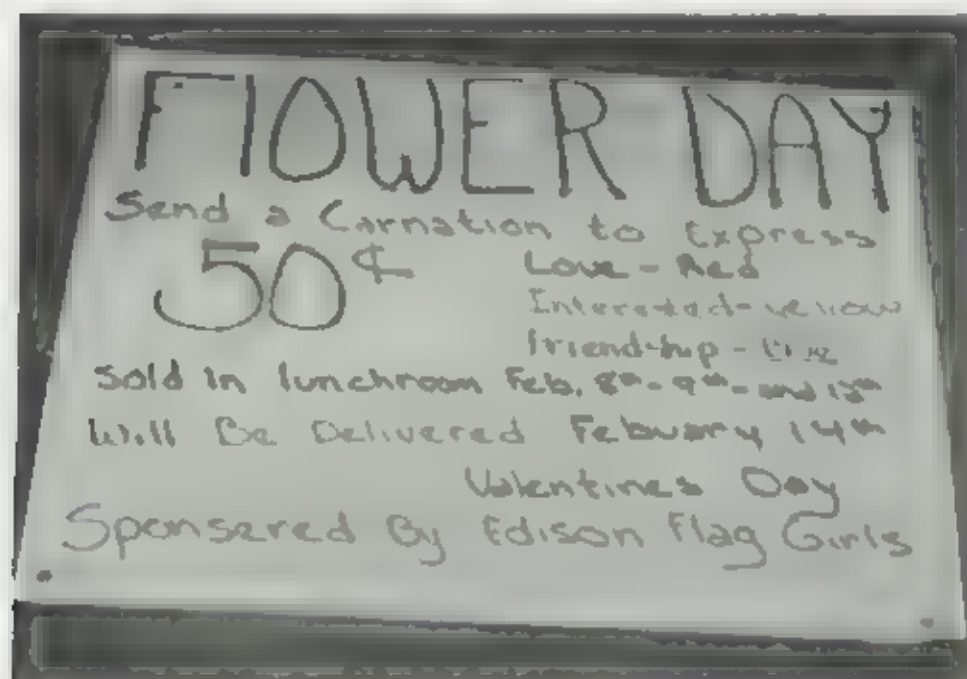 FlOWER DAY
Send a Carnation to Express
50¢
Love - Red
Interested - yellow
Friendship -
Sold In lunchroom Feb. 8th - 9th - and 13th
Will Be Delivered Febuary 14th
Valentines Day
Sponsered By Edison Flag Girls